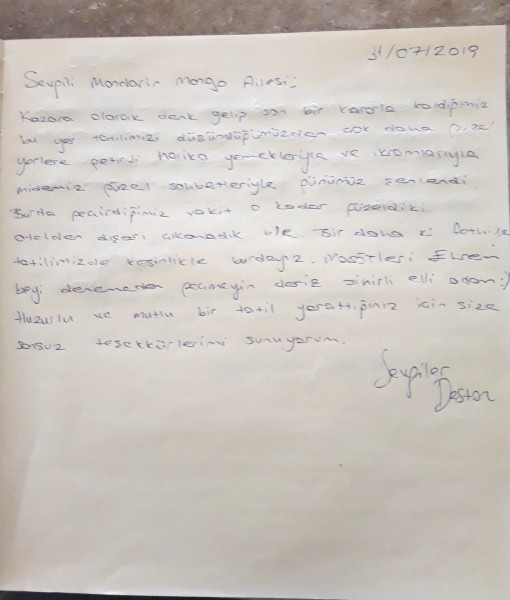 31/07/2019
Sevgili Mandarin Mango Ailesi;
Kazara olarak denk gelip son bir kararla kaldığımız
bu yer tatilimizi düşündüğümüzden çok daha güzel
yerlere getirdi harika yemekleriyle ve ikramlarıyla
midemiz güzel sohbetleriyle günümüz şenlendi.
Burda geçirdiğimiz vakit o kadar güzeldiki
otelden dışarı çıkamadık bile. Bir daha ki
tatilimizde kesinlikle burdayız. Ekrem
beyi denemeden geçmeyin deriz sihirli elli adam :)
Huzurlu ve mutlu bir tatil yarattığınız için size
sonsuz teşekkürlerimi sunuyorum.
Sevgiler
Destan